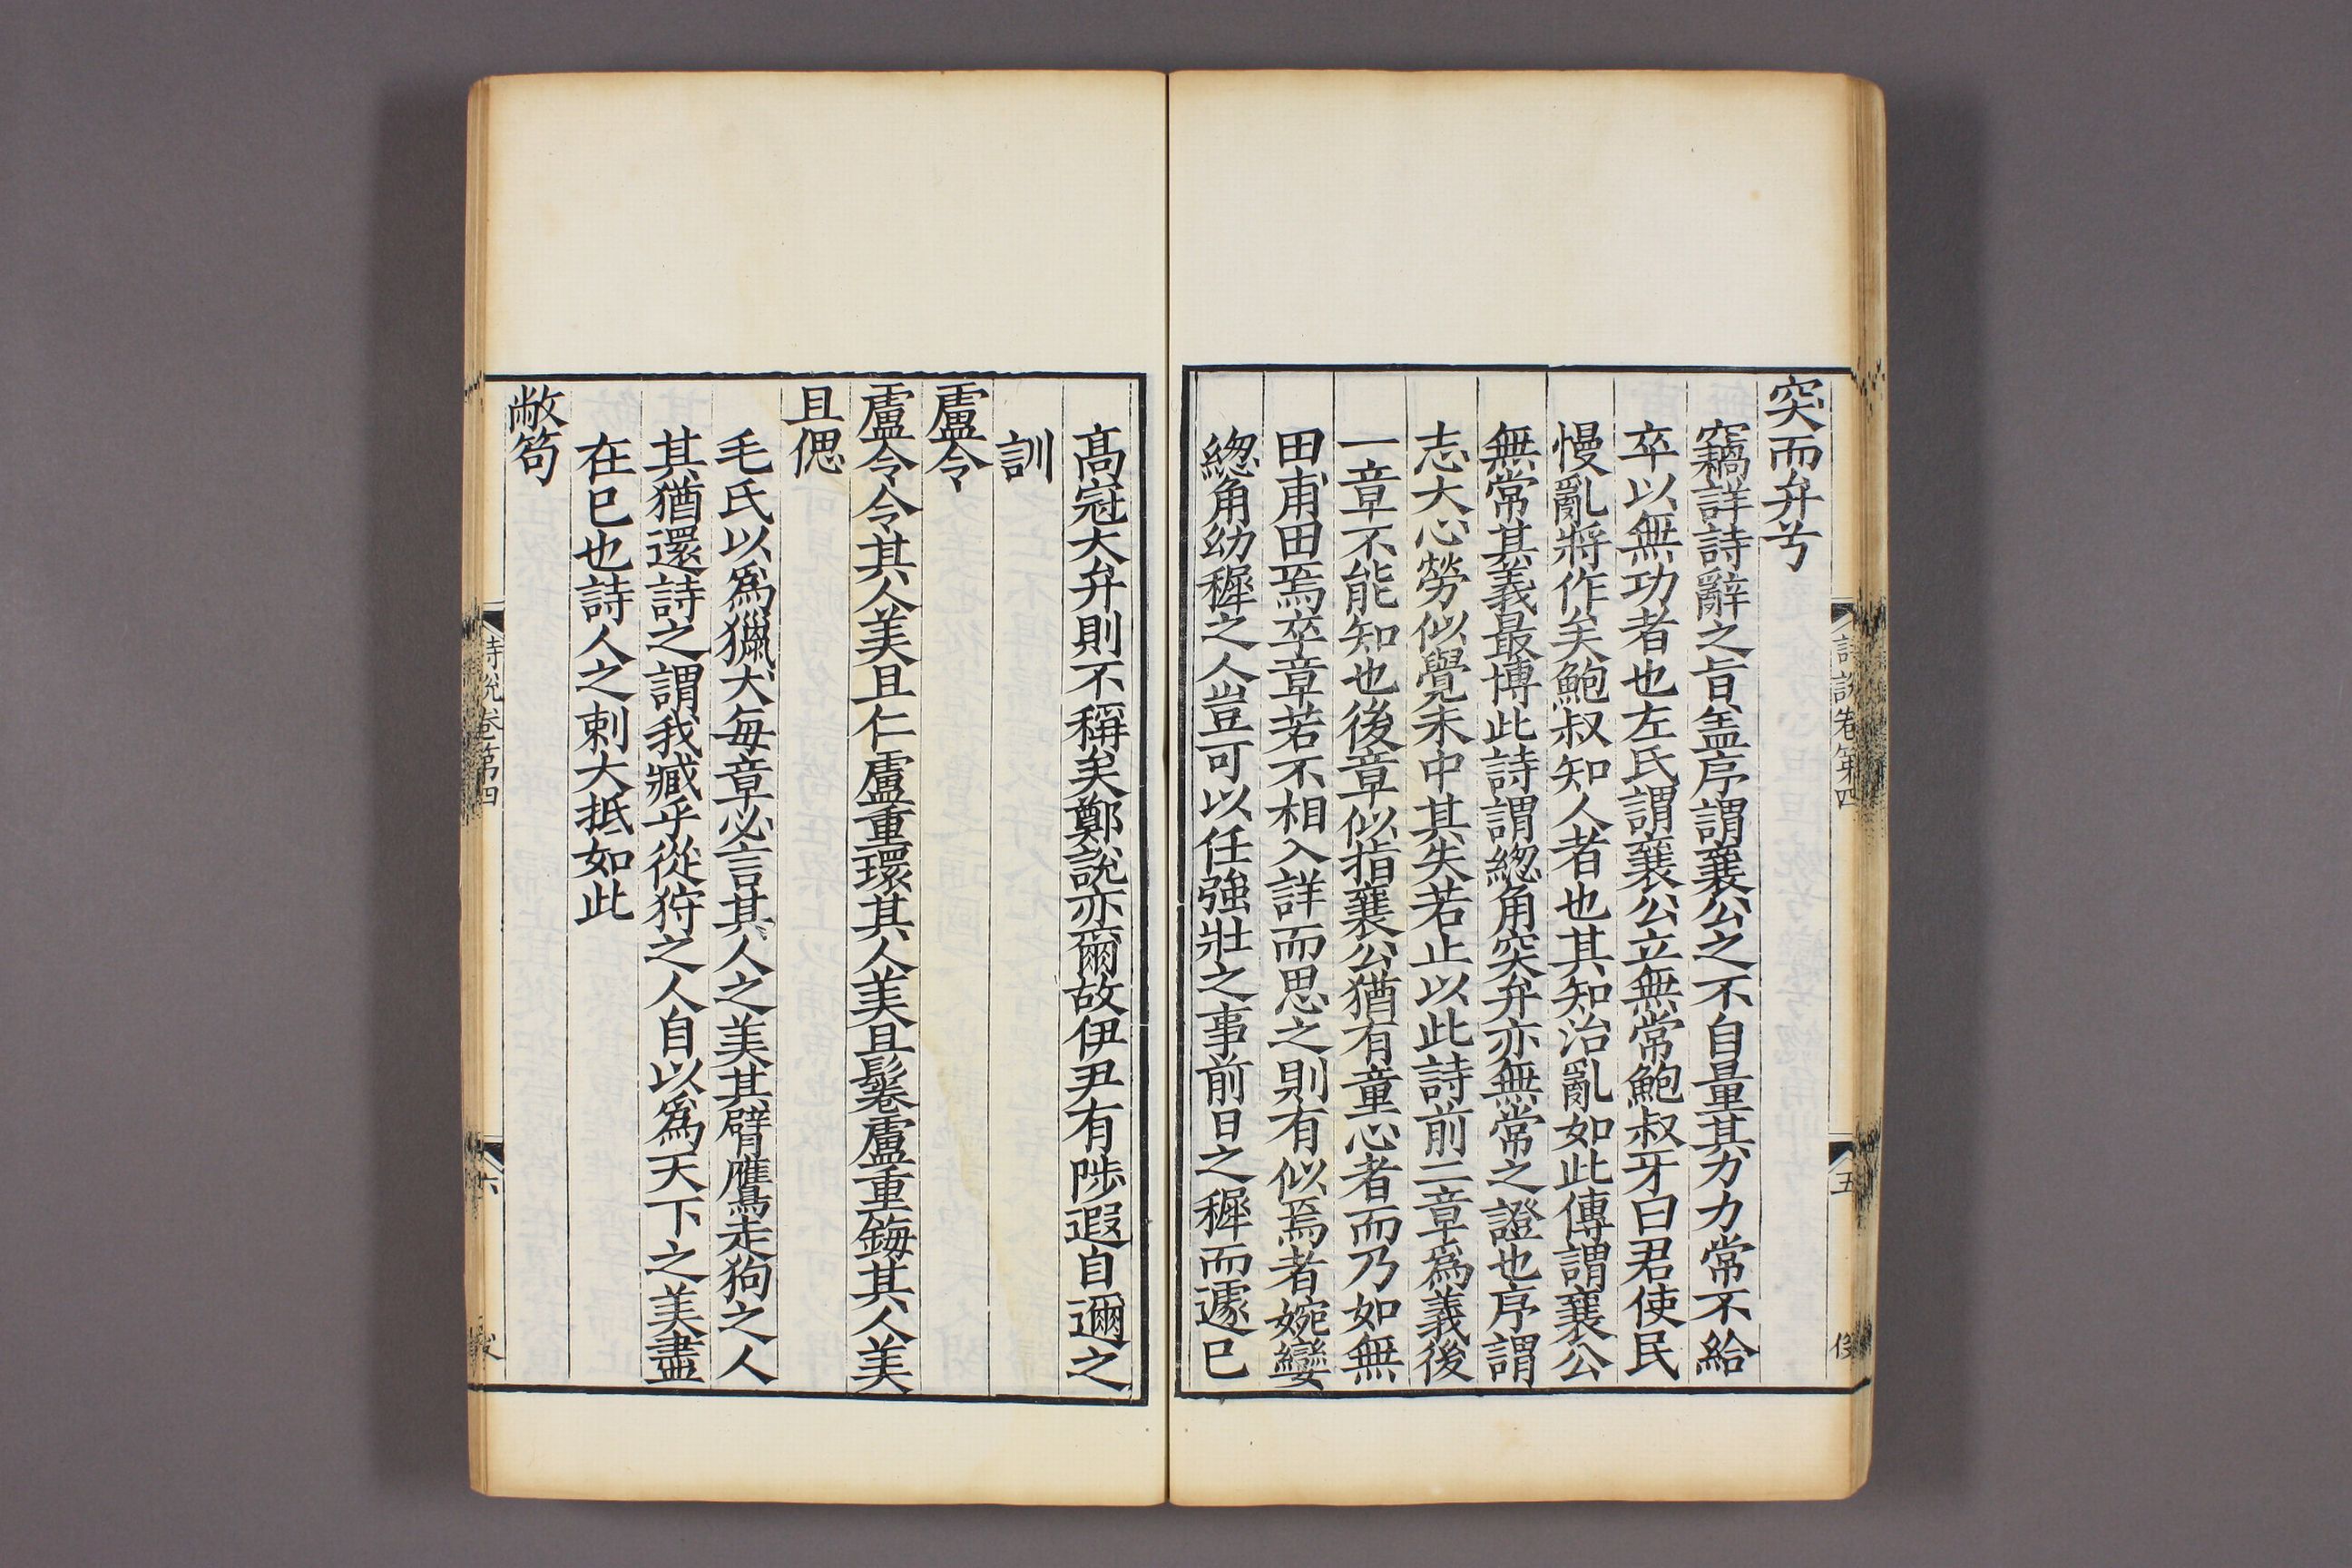 突而弁兮
竊詳詩辭之旨盖序謂襄公之不自量其力力常不給
卒以無功者也左氏謂襄公立無常鮑叔牙曰君使民
慢亂將作矣鮑叔知人者也其知治亂如此傳謂襄公
無常其義最博此詩謂緫角突弁亦無常之證也序謂
志大心勞似覺未中其失若止以此詩前二章爲義後
一章不能知也後章似指襄公猶有童心者而乃如無
田甫田焉卒章若不相入詳而思之則有似焉者婉孌
緫角幼穉之人豈可以任強壯之事前日之穉而遽已
詩說卷第四
五
高冠大弁則不稱矣鄭說亦爾故伊尹有陟遐自邇之
訓
盧令
盧令令其人美且仁盧重環其人美且鬈盧重鋂其人美
且偲
毛氏以爲獵犬每章必言其人之美其臂鷹走狗之人
其猶還詩之謂我臧乎從狩之人自以爲天下之美盡
在已也詩人之刺大抵如此
敝笱
詩說卷第四
六